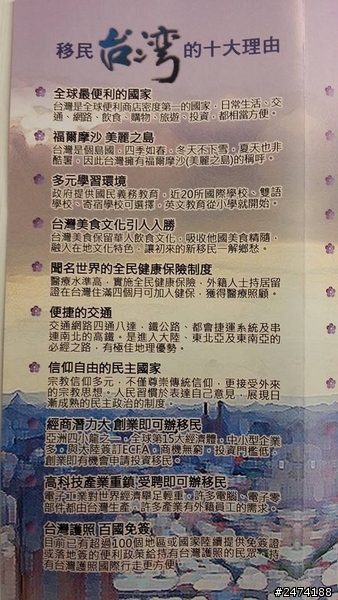 移民台灣的十大理由
全球最便利的國家
台灣是全球便利商店密度第一的國家，日常生活、交
通、網路、飲食、購物、旅遊、投資，都相當方便。
福爾摩沙 美麗之島
台灣是個島國，四季如春，冬天不下雪，夏天也非
酷署，因此台灣擁有福爾摩沙(美麗之島)的稱呼。
多元學習環境
政府提供國民義務教育，近20所國際學校、雙語
學校、寄宿學校可選擇，英文教育從小學就開始。
台灣美食文化引人入勝
台灣美食保留華人飲食文化，吸收他國美食精隨，
融入在地文化特色，讓初來的新移民一解鄉愁。
聞名世界的全民健康保險制度
醫療水準高，實施全民健康保險、外籍人士持居留
證在台灣住滿四個月可加入健保，獲得醫療照顧。
便捷的交通
交通網路四通八達，鐵公路，都會捷運系統及串
連南北的高鐵。是進入大陸、東北亞及東南亞的
必經之路，有極佳地理優勢。
信仰自由的民主國家
宗教信仰多元，不僅尊崇傳統信仰，更接受外來
的宗教思想。人民習慣於表達自己意見，展現日
漸成熟的民主政治的制度。
經商潛力大 創業即可辦移民
亞洲四小龍之一，全球第15大經濟體，中小型企業
多，與大陸簽訂ECFA，商機無窮，投資門檻低，
創業即有機會申請投資移民。
高科技產業重鎮 受聘即可辦移民
電子工業對世界經濟舉足輕重，許多電腦、電子零
部件都由台灣生產，許多產業有外籍員工的需求。
台灣護照 百國免簽
目前已有超過100個地區或國家陸續提供免簽證
或落地簽的便利政策給持有台灣護照的民眾，持
有台灣護照國際行走更方便！
#2474188